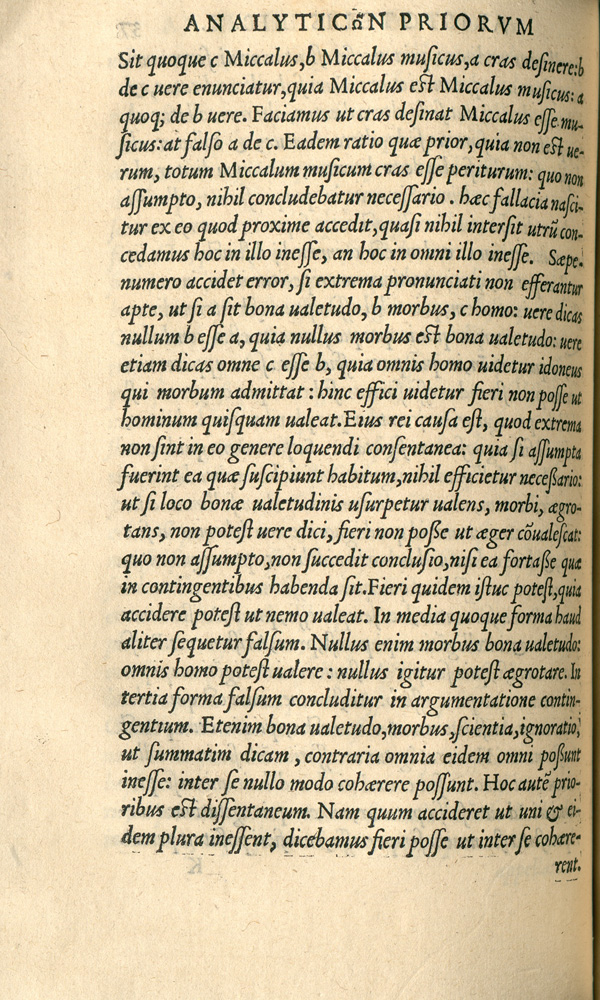 ANALYTICωN PRIORVM
Sit quoque c Miccalus, b Miccalus muſicus, a cras deſinere: b
de c uere enunciatur, quia Miccalus eſt Miccalus muſicus: a
quoq; de b uere. Faciamus ut cras deſinat Miccalus eſſe mu-
ſicus: at falſo a de c. Eadem ratio quæ prior, quia non eſt ue-
rum, totum Miccalum muſicum cras eſſe periturum: quo non
aſſumpto, nihil concludebatur neceſſario. hæc fallacia naſci-
tur ex eo quod proxime accedit, quaſi nihil interſit utrū con-
cedamus hoc in illo ineſſe, an hoc in omni illo ineſſe. Sæpe-
numero accidet error, ſi extrema pronunciati non efferantur
apte, ut ſi a ſit bona ualetudo, b morbus, c homo: uere dicas
nullum b eſſe a, quia nullus morbus eſt bona ualetudo: uere
etiam dicas omne c eſſe b, quia omnis homo uidetur idoneus
qui morbum admittat: hinc effici uidetur fieri non poſſe ut
hominum quiſquam ualeat. Eius rei cauſa eſt, quod extrema
non ſint in eo genere loquendi conſentanea: quia ſi aſſumpta
fuerint ea quæ ſuſcipiunt habitum, nihil efficietur neceßario:
ut ſi loco bonæ ualetudinis uſurpetur ualens, morbi, ægro-
tans, non poteſt uere dici, fieri non poße ut æger cōualeſcat:
quo non aſſumpto, non ſuccedit concluſio, niſi ea fortaße quæ
in contingentibus habenda ſit. Fieri quidem iſtuc poteſt, quia
accidere poteſt ut nemo ualeat. In media quoque forma haud
aliter ſequetur falſum. Nullus enim morbus bona ualetudo:
omnis homo poteſt ualere: nullus igitur poteſt ægrotare. In
tertia forma falſum concluditur in argumentatione contin-
gentium. Etenim bona ualetudo, morbus, ſcientia, ignoratio,
ut ſummatim dicam, contraria omnia eidem omni poßunt
ineſſe: inter ſe nullo modo cohærere poſſunt. Hoc autē prio-
ribus eſt diſſentaneum. Nam quum accideret ut uni & ei-
dem plura ineſſent, dicebamus fieri poſſe ut inter ſe cohære-
rent.